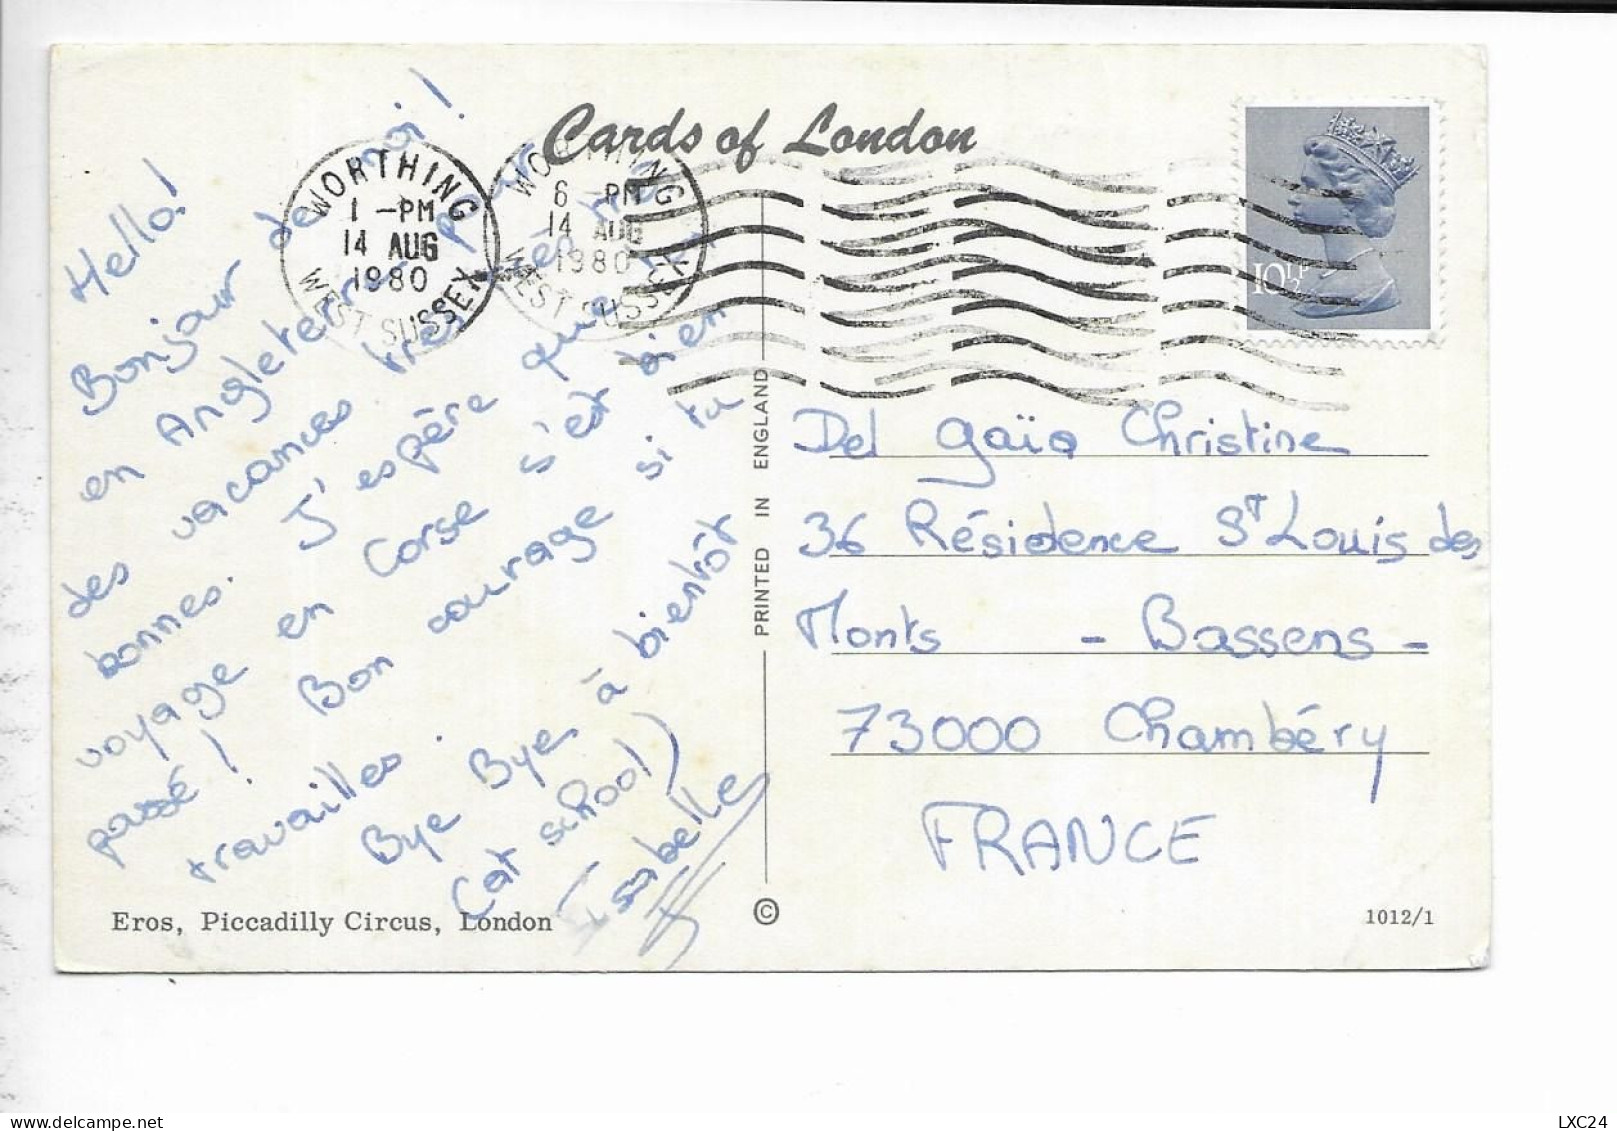 Cards of London
WORTHING
1 -PM
14 AUG
1980
WEST SUSSEX
WORTHING
6 -PM
14 AUG
1980
WEST SUSSEX
10½P
Hello!
Bonjour de moi!
en Angleterre pour
des vacances très très
bonnes. J'espère que ton
voyage en Corse s'est bien
passé! Bon courage si tu
travailles.
Bye Bye à bientôt
(at school)
Isabelle
PRINTED IN ENGLAND
Del gaïa Christine
36 Résidence ST Louis des
Monts - Bassens -
73000 Chambéry
FRANCE
Eros, Piccadilly Circus, London
©
1012/1
delcampe.net
LXC24